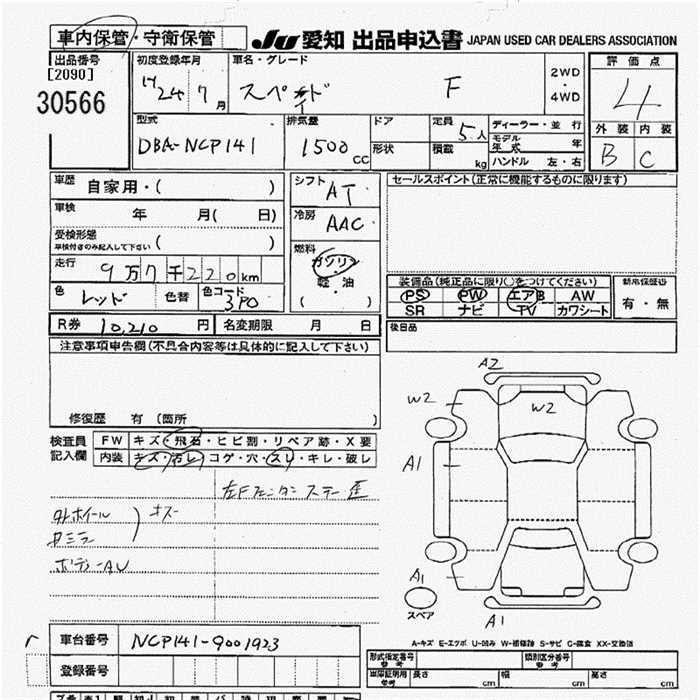 車内保管・守衛保管 JU 愛知 出品申込書 JAPAN USED CAR DEALERS ASSOCIATION
出品番号 初度登録年月 車名・グレード 2WD・4WD 評価点
[2090]
30566 24年 7月 スペイド F 4
型式 排気量 ドア 定員 5人 ディーラー・並行 外装 内装
DBA-NCP141 1500cc 形状 積載 kg モデル年式 年 B C
ハンドル 左・右
車歴 自家用・( ) シフト AT セールスポイント(正常に機能するものに限ります)
車検 年 月( 日) 冷房 AAC
受検形態 ( )
車検付きのみ記入して下さい
燃料 ガソリン・軽油 ( )
走行 9万7千220km
色 レッド 色替 色コード 3P0
装備品(純正品に限り○をつけてください) 新車保証書
PS PW エアB AW 有・無
SR ナビ TV カワシート
R券 10,210円 名変期限 月 日 後日品
注意事項申告欄(不具合内容等は具体的に記入して下さい)
修復歴 有 (箇所 )
検査員記入欄 FW キズ・飛石・ヒビ割・リペア跡・X要
内装 キズ・汚レ・コゲ・穴・スレ・キレ・破レ
左Fフェンダー ステー 歪
外ホイール キズ
ドミラ
ボディーAU
A2
W2
W2
A1
A1
スペア
A1
A-キズ E-エクボ U-凹み W-補修跡 S-サビ C-腐食 XX-交換済
車台番号 NCP141-9001923
登録番号
型式指定番号 参考 類別区分番号 参考
車庫証明用 参考 長さ cm 幅 cm 高さ cm